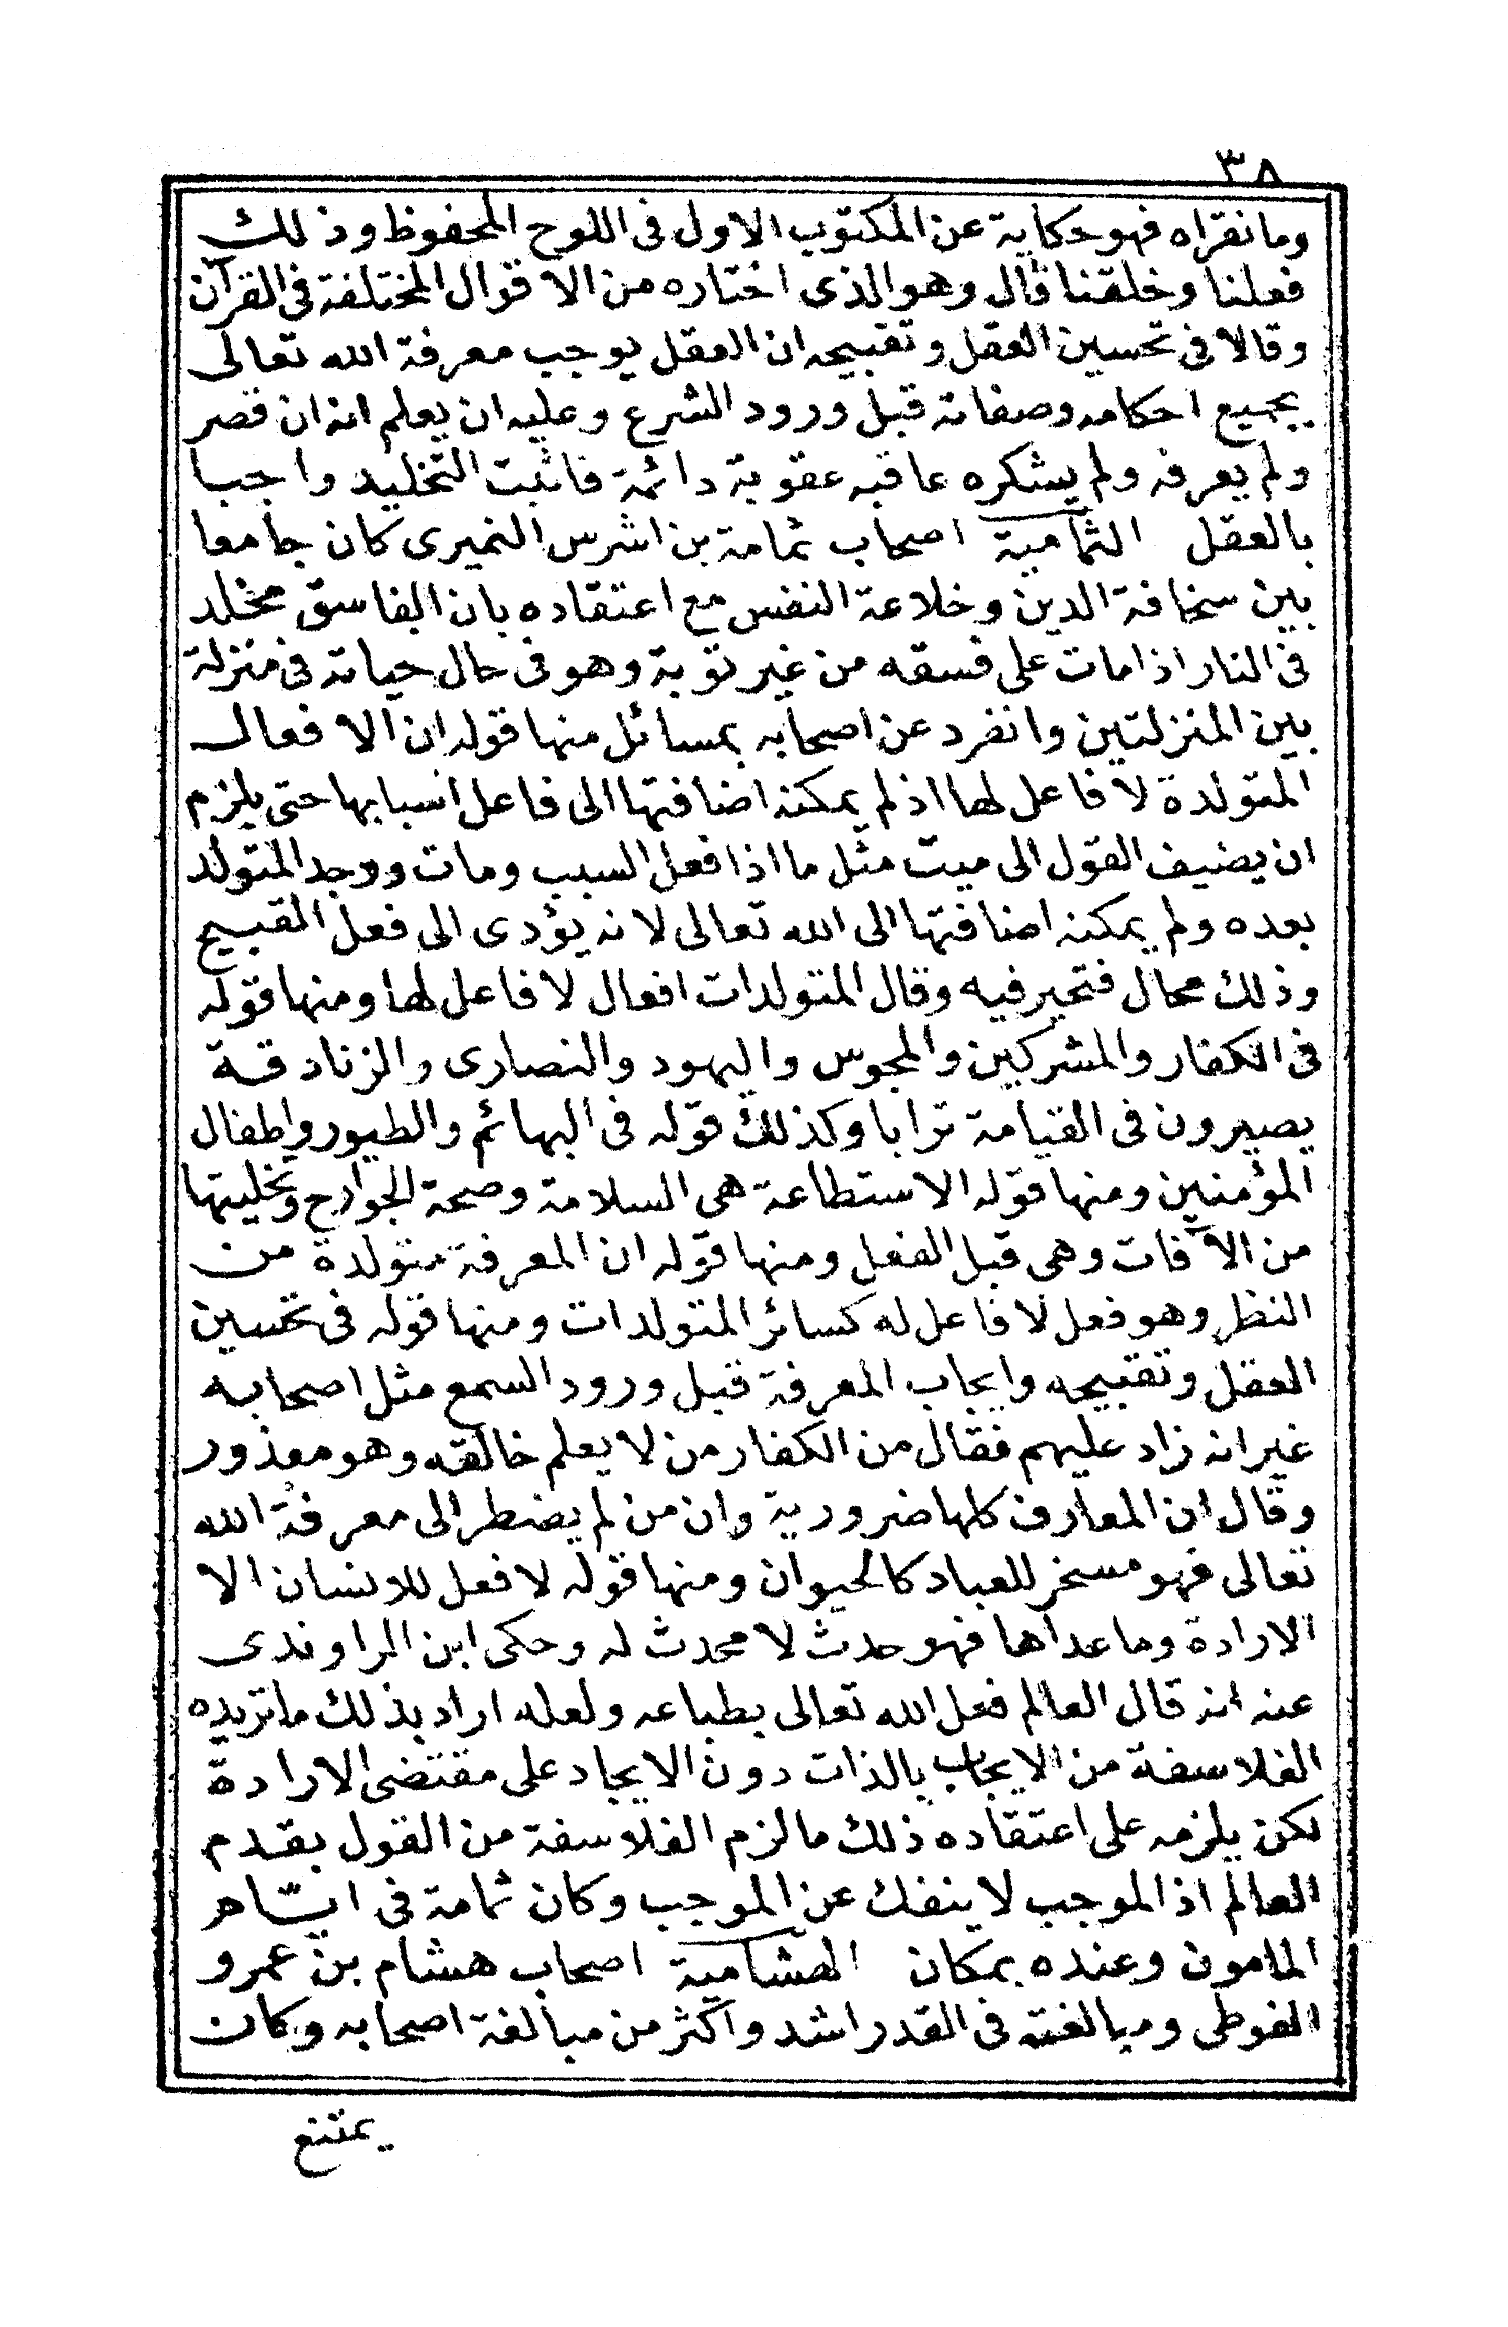 ٣٨
وما نقراه فهو حكاية عن المكتوب الاول فى اللوح المحفوظ وذلك
فعلنا وخلقنا قال وهو الذى اختاره من الاقوال المختلفة فى القرآن
وقالا فى تحسين العقل وتقبيحه ان العقل يوجب معرفة الله تعالى
بجميع احكامه وصفاته قبل ورود الشرع وعليه ان يعلم انه ان قصر
ولم يعرفه ولم يشكره عاقبه عقوبة دائمة فاثبت التخليد واجبا
بالعقل الثمامية اصحاب ثمامة بن اشرس النميرى كان جامعا
بين سخافة الدين وخلاعة النفس مع اعتقاده بان الفاسق مخلد
فى النار اذا مات على فسقه من غير توبة وهو فى حال حياته فى منزلة
بين المنزلتين وانفرد عن اصحابه بمسائل منها قوله ان الافعال
المتولدة لا فاعل لها اذ لم يمكنه اضافتها الى فاعل اسبابها حتى يلزم
ان يضيف القول الى ميت مثل ما اذا فعل السبب ومات ووجد المتولد
بعده ولم يمكنه اضافتها الى الله تعالى لانه يؤدى الى فعل القبيح
وذلك محال فتحير فيه وقال المتولدات افعال لا فاعل لها ومنها قوله
فى الكفار والمشركين والمجوس واليهود والنصارى والزنادقة
يصيرون فى القيامة ترابا وكذلك قوله فى البهائم والطيور واطفال
المؤمنين ومنها قوله الاستطاعة هى السلامة وصحة الجوارح وتخليتها
من الآفات وهى قبل الفعل ومنها قوله ان المعرفة متولدة من
النظر وهو فعل لا فاعل له كسائر المتولدات ومنها قوله فى تحسين
العقل وتقبيحه وايجاب المعرفة قبل ورود السمع مثل اصحابه
غير انه زاد عليهم فقال من الكفار من لا يعلم خالقه وهو معذور
وقال ان المعارف كلها ضرورية وان من لم يضطر الى معرفة الله
تعالى فهو مسخر للعباد كالحيوان ومنها قوله لا فعل للانسان الا
الارادة وما عداها فهو حدث لا محدث له وحكى ابن الراوندى
عنه انه قال العالم فعل الله تعالى بطباعه ولعله اراد بذلك ما تريده
الفلاسفة من الايجاب بالذات دون الايجاد على مقتضى الارادة
لكن يلزمه على اعتقاده ذلك ما لزم الفلاسفة من القول بقدم
العالم اذ الموجب لا ينفك عن الموجب وكان ثمامة فى ايام
المامون وعنده بمكان الهشامية اصحاب هشام بن عمرو
الفوطى ومبالغته فى القدر اشد واكثر من مبالغة اصحابه وكان
يمتنع